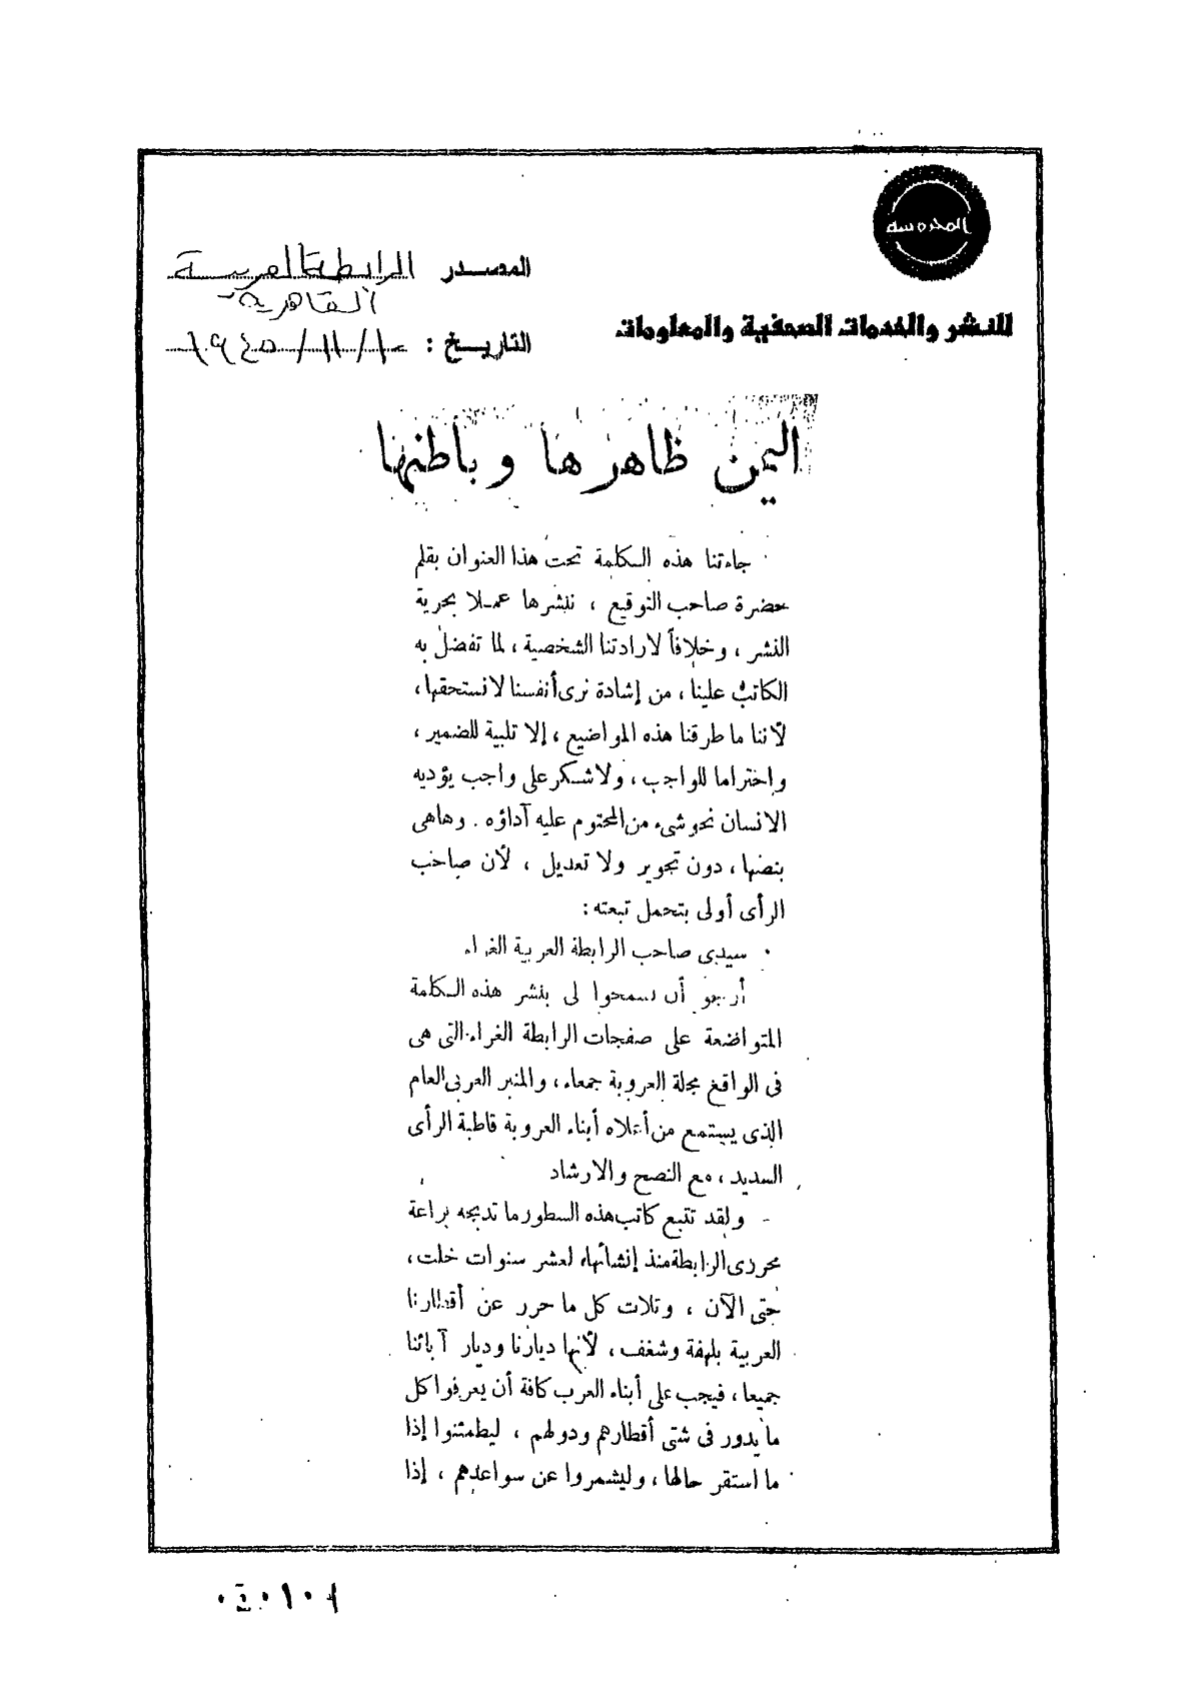 المحروسة
للنشر والخدمات الصحفية والمعلومات
المصدر الرابطة العربية
القاهرية
التاريخ : ١٩٤٥/١١/١٠
اليمن ظاهرها وباطنها
جاءتنا هذه الكلمة تحت هذا العنوان بقلم
حضرة صاحب التوقيع ، ننشرها عملا بحرية
النشر ، وخلافاً لارادتنا الشخصية ، لما تفضل به
الكاتب علينا ، من إشادة نرى أنفسنا لا نستحقها ،
لأننا ما طرقنا هذه المواضيع ، إلا تلبية للضمير ،
واحتراما للواجب ، ولا شكر على واجب يؤديه
الانسان نحو شىء من المحتوم عليه آداؤه . وهاهى
بنصها ، دون تحوير ولا تعديل ، لأن صاحب
الرأى أولى بتحمل تبعته :
سيدى صاحب الرابطة العربية الغراء
أرجو أن تسمحوا لى بنشر هذه الكلمة
المتواضعة على صفحات الرابطة الغراء التى هى
فى الواقع مجلة العروبة جمعاء ، والمنبر العربى العام
الذى يستمع من أعلاه أبناء العروبة قاطبة الرأى
السديد ، مع النصح والارشاد
ولقد تتبع كاتب هذه السطور ما تدبجه براعة
محررى الرابطة منذ إنشائها، لعشر سنوات خلت ،
حتى الآن ، وتلات كل ما حرر عن أقطارنا
العربية بلهفة وشغف ، لأنها ديارنا وديار آبائنا
جميعا ، فيجب على أبناء العرب كافة أن يعرفوا كل
ما يدور فى شتى أقطارهم ودولهم ، ليطمئنوا إذا
ما استقر حالها ، وليشمروا عن سواعدهم ، إذا